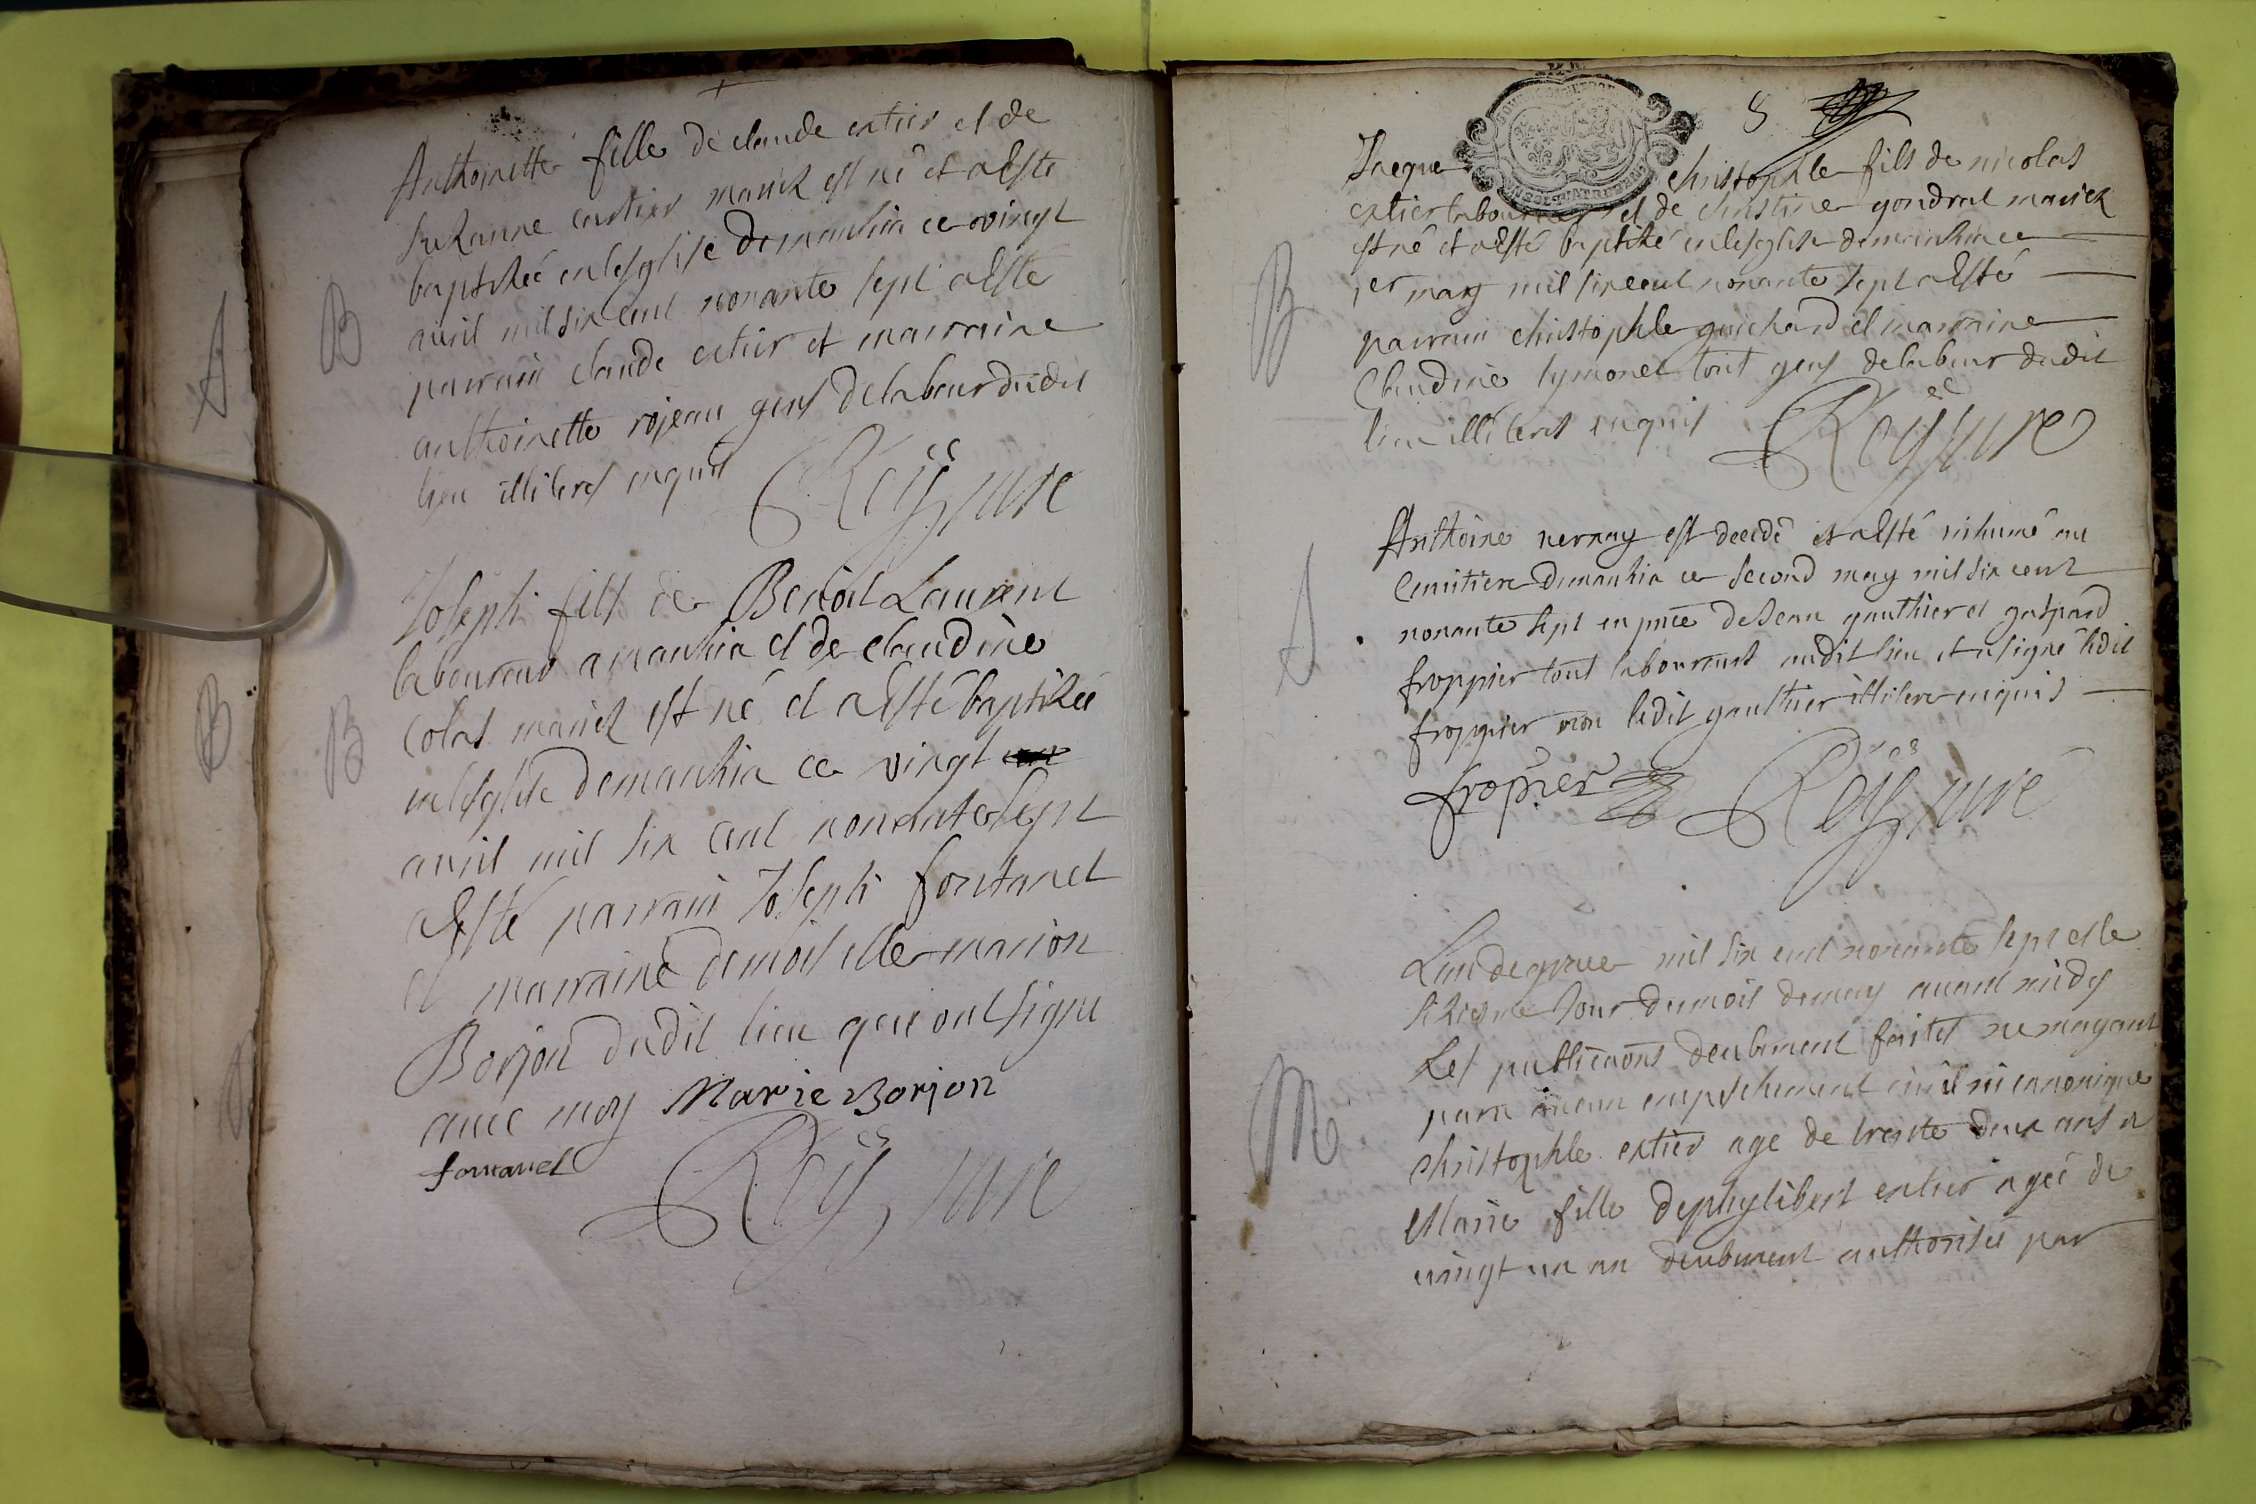 Anthoinette fille de claude extier et de
Suzanne extier mariez est né et a Esté
baptizeé en lesglise de manhia ce vingt
avril mil six cent nonante sept a Esté
parrain claude extier et marraine
anthoinette rojeau gens de labeur dudit
lieu illiteres enquis
Roÿ curé
B
Joseph fils de Benoit Laurent
laboureur a manhia et de claudine
Colas mariez est né et a Esté baptizeé
en lesglise de manhia ce vingt
avril mil six cent nonante sept
a Esté parrain Joseph fontanel
et marraine demoiselle marion
Borjon dudit lieu qui ont signe
avec moy Marie Borjon
fontanel
Roÿ curé
B
8
Jaque christophle fils de nicolas
extier laboureur et de christine gondrat mariez
est né et a Esté baptizé en lesglise de manhia ce
1er may mil six cent nonante sept a Esté
parrain christophle guichard et marraine
Claudine symonet tout gens de labeur dudit
lieu illiteres enquis
Roÿ curé
B
Anthoine vernay est decedé et a Esté inhumé au
Cimitiere de manhia ce second may mil six cent
nonante sept en pnce de Jean gauthier et gaspard
froppier tout laboureurs audit lieu et a signé ledit
froppier non ledit gauthier illitere enquis
fropier
Roÿ curé
Lan de grace mil six cent nonante sept et le
sezieme Jour du mois de may avant midy
Les publicaons deubment faites ne nayant
paru aucun empechement civil ni canonique
christophle extier age de trente deux ans et
Marie fille de phylibert extier ageé de
vingt un an deubment authorisée par
M